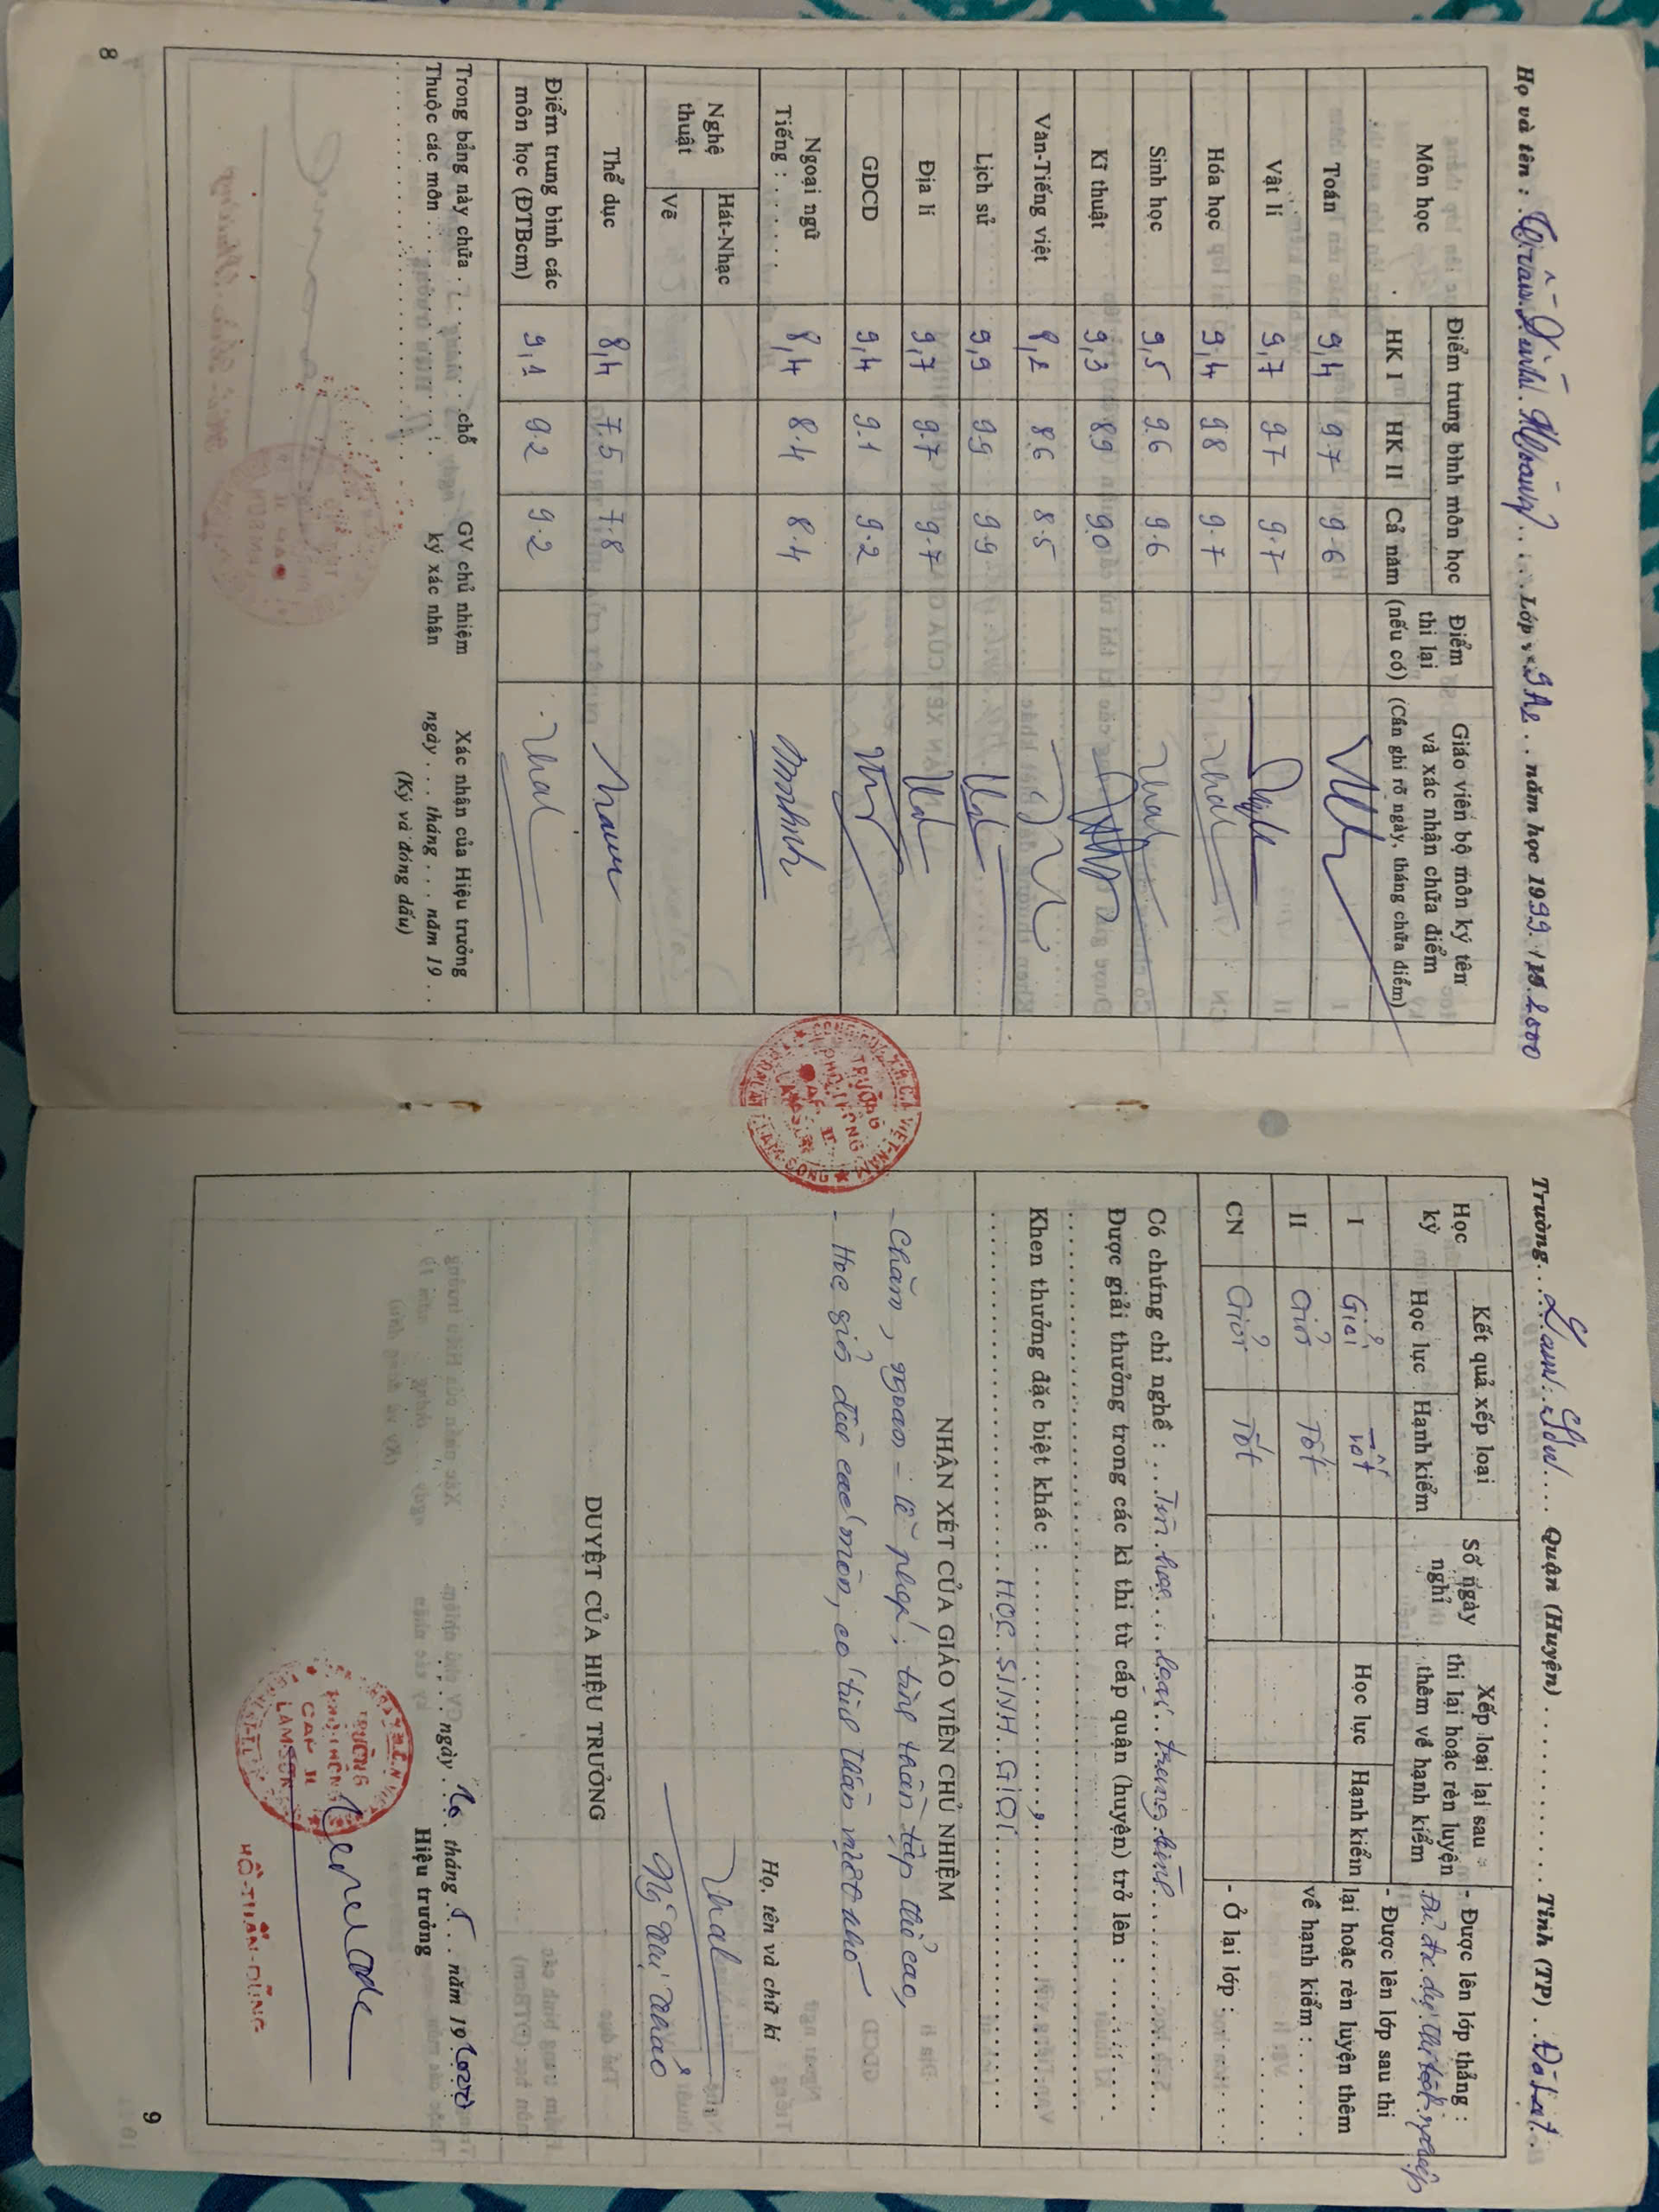 Họ và tên : Lớp 9A2 . . năm học 1999 / 2000
Môn học
Điểm trung bình môn học
Điểm thi lại (nếu có)
Giáo viên bộ môn ký tên và xác nhận chữa điểm (Cần ghi rõ ngày, tháng chữa điểm)
HK I HK II Cả năm
Toán 9,4 9.7 9.6
Vật lí 9,7 9.7 9.7
Hóa học 9,4 9.8 9.7
Sinh học 9,5 9.6 9.6
Kĩ thuật 9,3 8.9 9.0
Van-Tiếng việt 8,2 8.6 8.5
Lịch sử 9,9 9.9 9.9
Địa lí 9,7 9.7 9.7
GDCD 9,4 9.1 9.2
Ngoại ngữ
Tiếng : . . . . . 8,4 8.4 8.4
Nghệ thuật
Hát-Nhạc
Vẽ
Thể dục 8,4 7.5 7.8
Điểm trung bình các
môn học (ĐTBcm) 9,1 9.2 9.2
Trong bảng này chữa . . . . . . chỗ
Thuộc các môn . . . . . .
GV chủ nhiệm
ký xác nhận
Xác nhận của Hiệu trưởng
ngày . . . tháng . . . năm 19 . .
(Ký và đóng dấu)
8
Trường. . . Lam Sơn . . . Quận (Huyện) . . . . . . Tỉnh (TP) . . Đà Lạt .
Học kỳ
Kết quả xếp loại
Học lực Hạnh kiểm
Số ngày nghỉ
Xếp loại lại sau thi lại hoặc rèn luyện thêm về hạnh kiểm
Học lực Hạnh kiểm
I Giỏi Tốt
II Giỏi Tốt
CN Giỏi Tốt
- Được lên lớp thẳng :
Đủ đk dự thi tốt nghiệp
- Được lên lớp sau thi
lại hoặc rèn luyện thêm
về hạnh kiểm : . . . . . .
- Ở lại lớp : . . . . . .
Có chứng chỉ nghề : . . Tin học . . . loại . . trung bình . . . . . .
Được giải thưởng trong các kì thi từ cấp quận (huyện) trở lên : . . . . . .
Khen thưởng đặc biệt khác : . . . . . .
. . . . . . HỌC SINH GIỎI . . . . . .
NHẬN XÉT CỦA GIÁO VIÊN CHỦ NHIỆM
- Chăm, ngoan - lễ phép; tinh thần tập thể cao,
- Học giỏi đều các môn, có tinh thần
Họ, tên và chữ kí
DUYỆT CỦA HIỆU TRƯỞNG
. . . ngày . . 26 . tháng . 5 . . năm 19 2000
Hiệu trưởng
TRƯỜNG
PHỔ THÔNG
CẤP II
LAM SƠN
HỒ-THUẦN-DŨNG
9